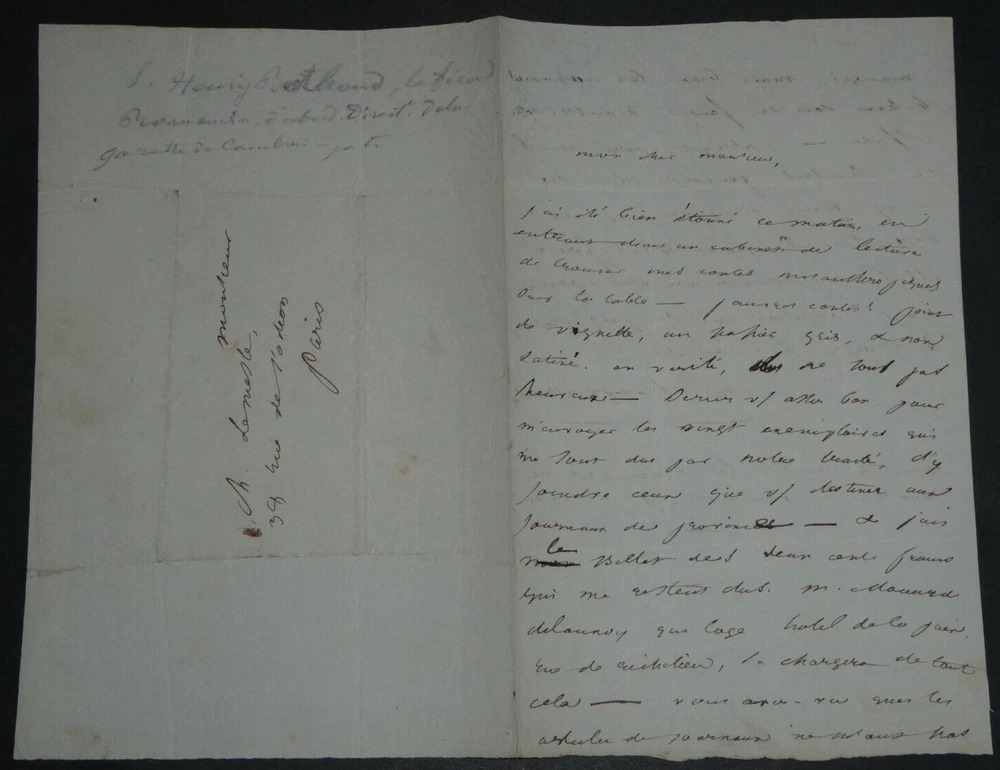 S. Henry Berthoud, le fécond
Romancier, d'abord Direct. De la
gazette de Cambrai - 
monsieur
h. Lemesle,
38 rue de l'odéon
Paris
mon cher monsieur,
j'ai été bien étonné ce matin, en
entrant dans un cabinet de lecture
de trouver mes contes misanthropiques
sur la table — pauvres contes! point
de vignette, un papier gris, & non
satiné. en vérité, ils ne sont pas
heureux — Serez vs assez bon pour
m'envoyer les vingt exemplaires qui
me sont dus par notre traité, d'y
joindre ceux que vs destinez aux
journaux de province — & puis
le Billet des deux cents francs
qui me restent dus. m. édouard
delaunoy qui loge hotel de la paix
rue de richelieu, se chargera de tout
cela — vous avez vu que les
articles de journaux ne vous pas